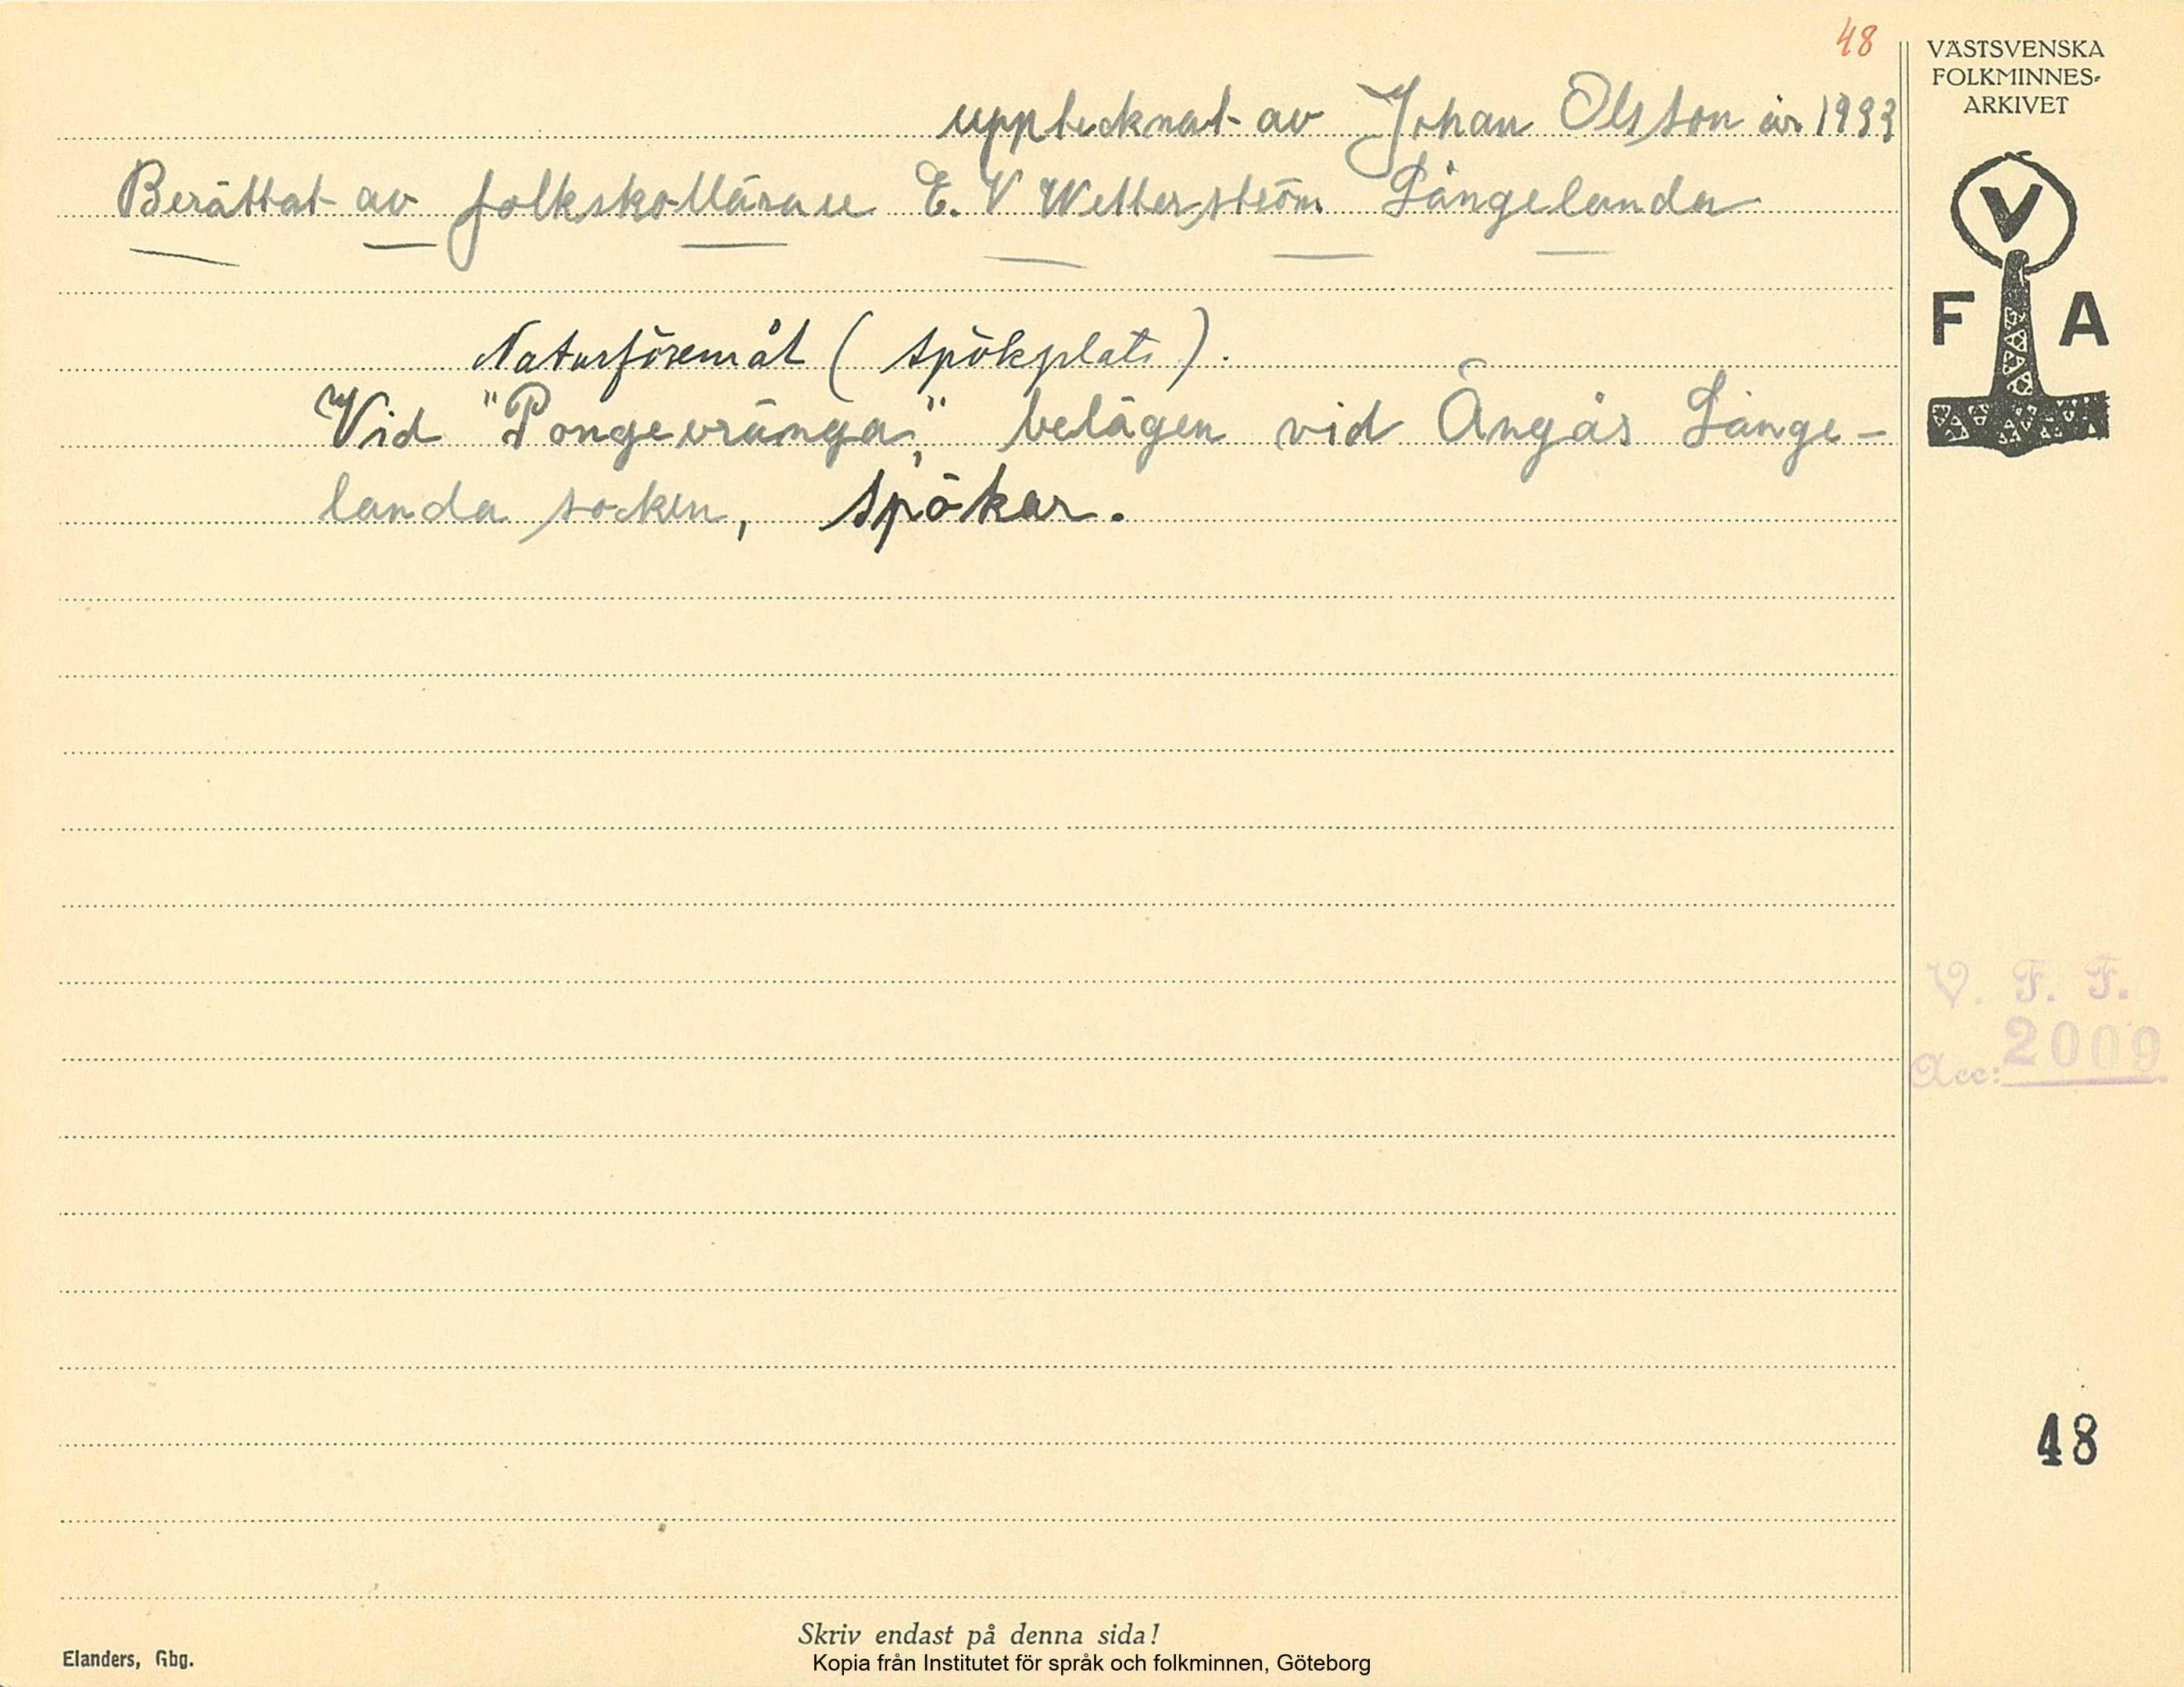 48
VÄSTSVENSKA
FOLKMINNES-
ARKIVET
upptecknat av Johan Olsson år 1933
Berättat av folkskolläraren E. V Wetterström Långelanda
V
F A
Naturföremål (spökplats).
Vid "Pongevränga", belägen vid Ängås Långe-
landa socken, spökar.
V. F. F.
Acc: 2009
48
Skriv endast på denna sida!
Elanders, Gbg.
Kopia från Institutet för språk och folkminnen, Göteborg